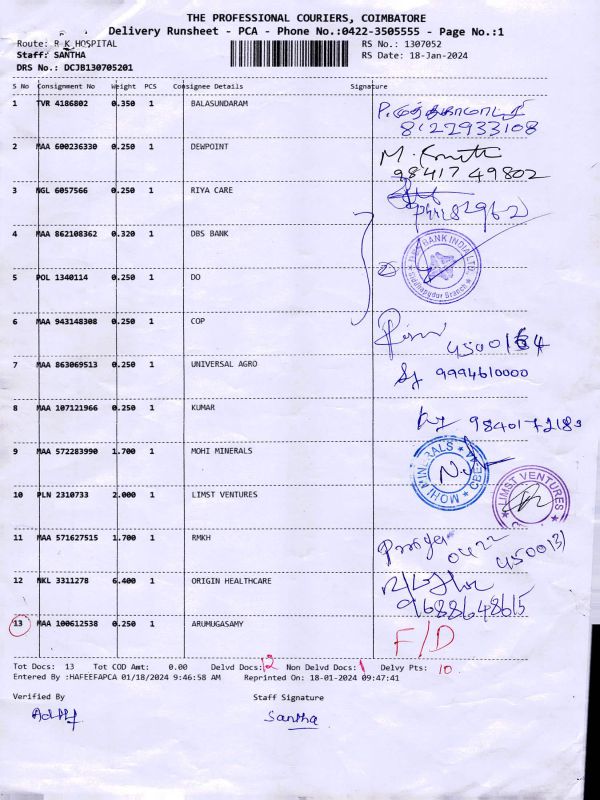 THE PROFESSIONAL COURIERS, COIMBATORE
Delivery Runsheet - PCA - Phone No.:0422-3505555 - Page No.:1
Route: R K HOSPITAL RS No.: 1307052
Staff: SANTHA RS Date: 18-Jan-2024
DRS No.: DCJB130705201
S No Consignment No Weight PCS Consignee Details Signature
1 TVR 4186802 0.350 1 BALASUNDARAM
8122933108
2 MAA 600236330 0.250 1 DEWPOINT M.
98417 49802
3 NGL 6057566 0.250 1 RIYA CARE
4 MAA 862108362 0.320 1 DBS BANK
DBS BANK INDIA LTD.
Siddhapudur Branch
5 POL 1340114 0.250 1 DO
6 MAA 943148308 0.250 1 COP
7 MAA 863069513 0.250 1 UNIVERSAL AGRO 9994610000
8 MAA 107121966 0.250 1 KUMAR
9 MAA 572283990 1.700 1 MOHI MINERALS
MOHI MINERALS
10 PLN 2310733 2.000 1 LIMST VENTURES
LIMST VENTURES
11 MAA 571627515 1.700 1 RMKH
0422
12 NKL 3311278 6.400 1 ORIGIN HEALTHCARE
9688648615
13 MAA 100612538 0.250 1 ARUMUGASAMY F/D
Tot Docs: 13 Tot COD Amt: 0.00 Delvd Docs: 12 Non Delvd Docs: 1 Delvy Pts: 10
Entered By :HAFEEFAPCA 01/18/2024 9:46:58 AM Reprinted On: 18-01-2024 09:47:41
Verified By Staff Signature
Santha